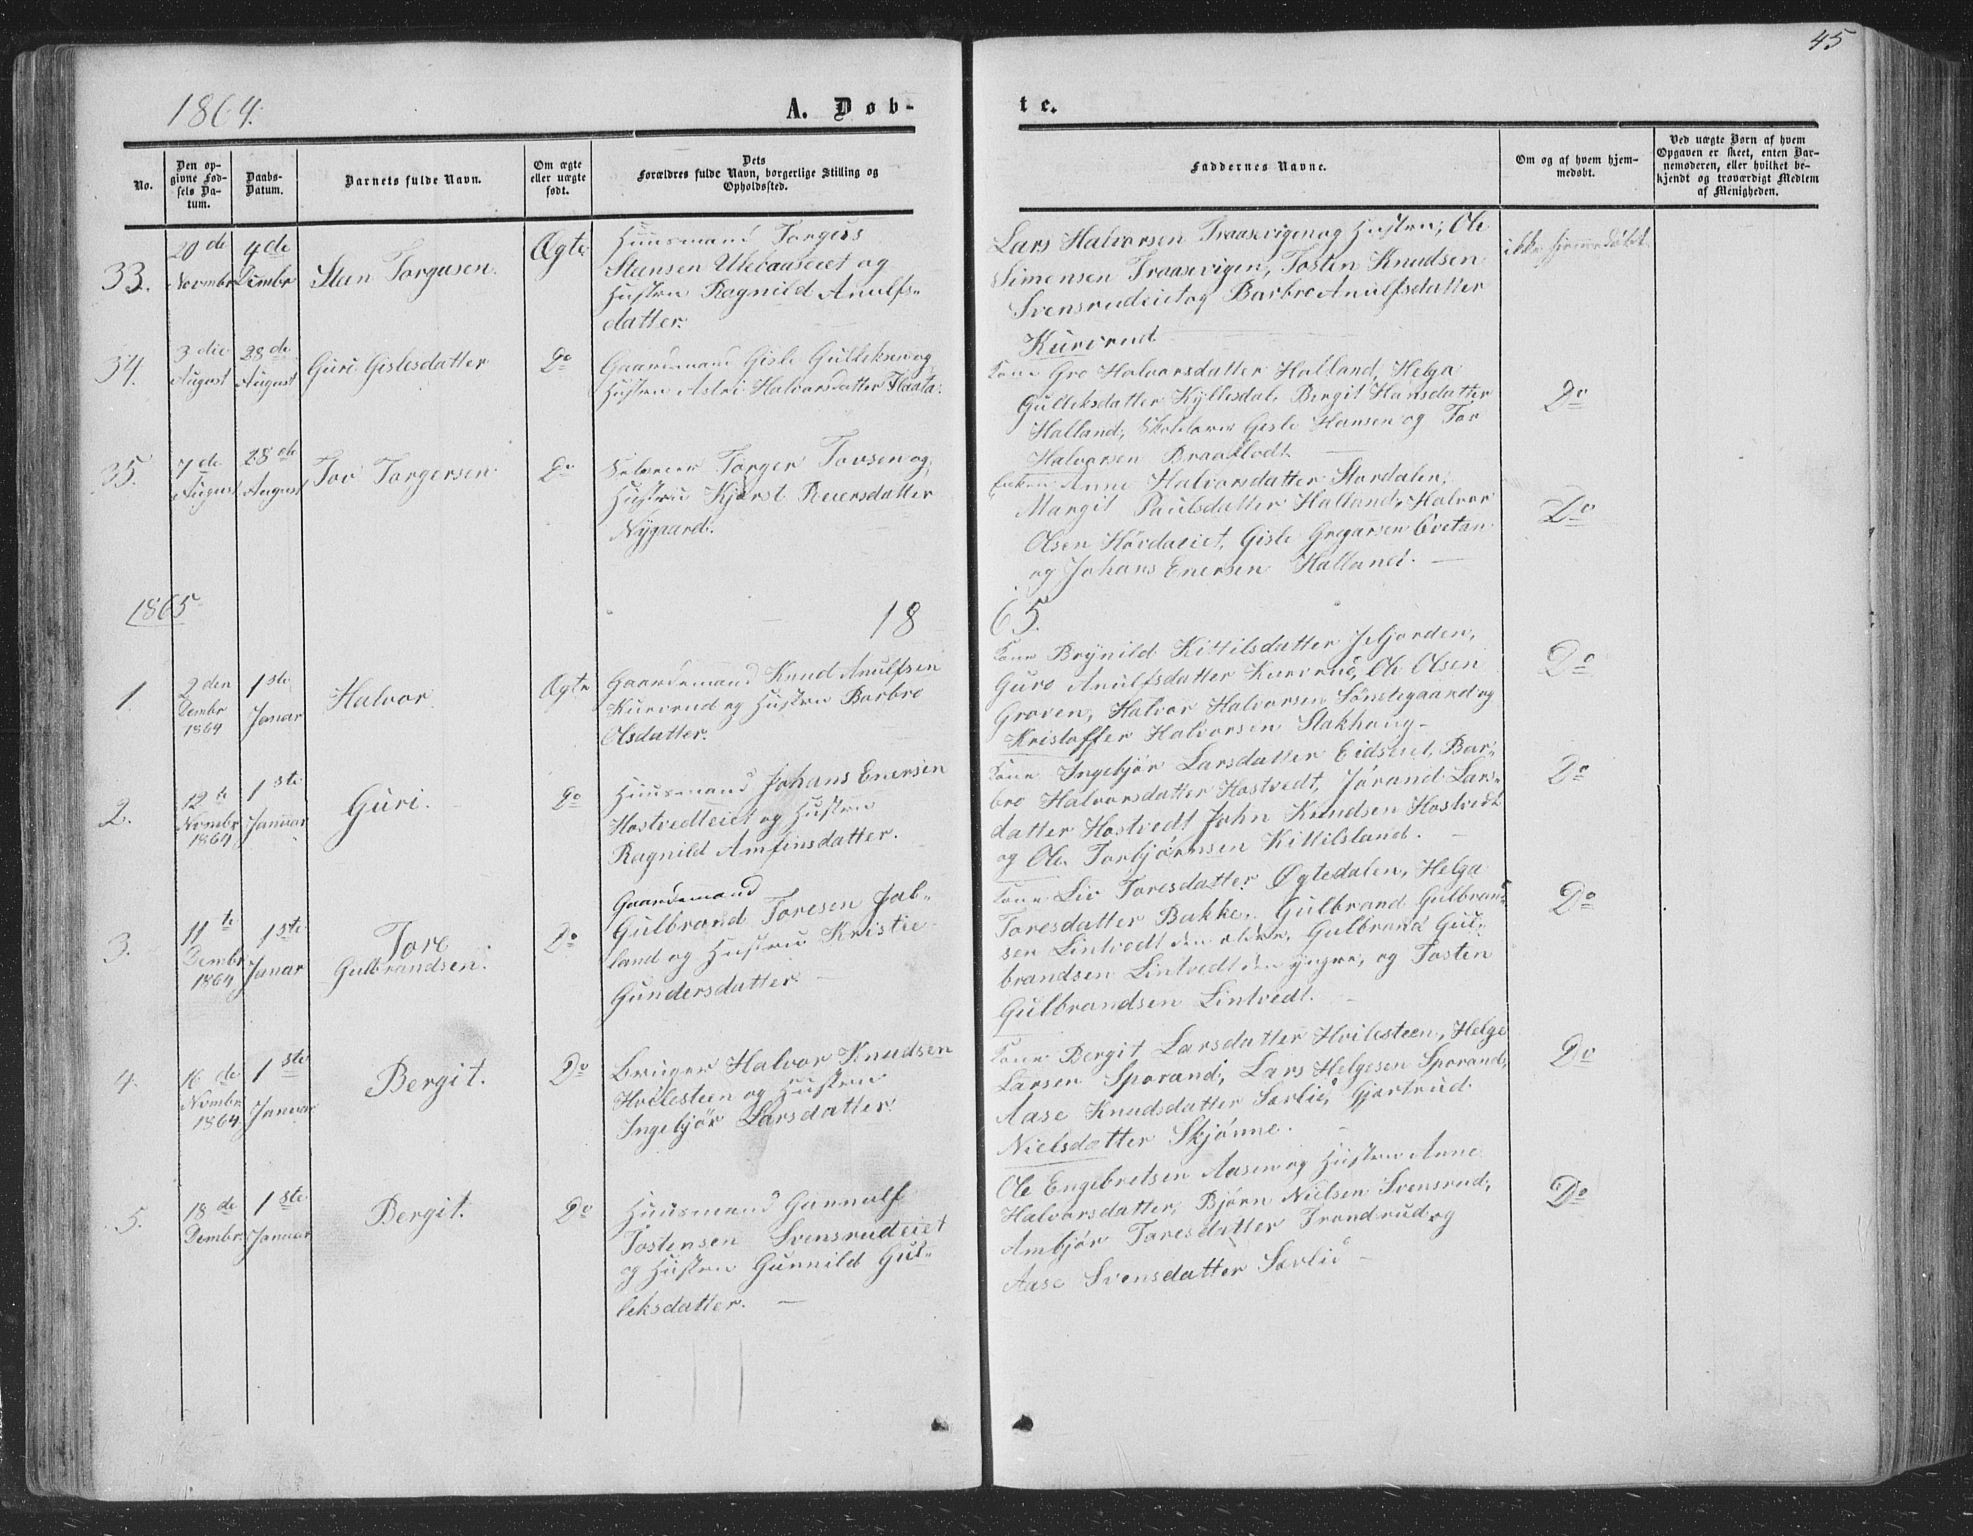 45
1864.
A. Døb-
te.
No.
Den opgivne Fødsels Datum.
Daabs-Datum.
Barnets fulde Navn.
Om ægte eller uægte født.
Dets Forældres fulde Navn, borgerlige Stilling og Opholdssted.
Faddernes Navne.
Om og af hvem hjemmedøbt.
Ved uægte Børn af hvem Opgaven er skeet, enten Barnemoderen, eller hvilket bekjendt og troværdigt Medlem af Menigheden.
33.
20de Novmbr
4de Dembr
Sten Torgusen.
Ægte
Huusmand Torgeis
Stensen Ulevaaseiet og
Hustru Ragnild Anulfs-
datter.
Lars Halvorsen Traasevigen og Hustru, Ole
Simensen Traasevigen, Tosten Knudsen
Svensrudeiet og Barbro Anulfsdatter
Kurvrud
ikke hjemmedøbt.
34.
3die August
28de August
Guri Gislesdatter
Do
Gaardemand Gisle Gulleksen og
Hustru Astri Halvorsdatter Flaata.
Kone Gro Halvorsdatter Halland, Helga
Gulleksdatter Kyllesdal, Bergit Hansdatter
Halland, Skolelærer Gisle Hansen og Tov
Halvorsen Braaklodt.
Do
35.
7de August
28de August
Tov Torgersen.
Do
Selveier Torger Tovsen og
Hustru Kjerst Reiersdatter
Nygaard.
Enken Anne Halvorsdatter Stordalen,
Margit Paulsdatter Halland, Halvor
Olsen Hovdaeiet, Gisle Gregarsen Evetan
og Johans Enersen Halland. —
Do
1865
18
65.
1.
2den Dembr 1864
1ste Januar
Halvor.
Ægte
Gaardemand Knud Anulfsen
Kurvrud og Hustru Barbro
Olsdatter.
Kone Brynild Kittilsdatter Jfjorden,
Guro Anulfsdatter Kurvrud, Ole Olsen
Groven, Halvor Halvorsen Sønstegaard og
Kristoffer Halvorsen Stakhaug —
Do
2.
12te Novmbr 1864
1ste Januar
Guri.
Do
Huusmand Johans Enersen
Hostvedteiet og Hustru
Ragnild Amfinsdatter.
Kone Ingebjør Larsdatter Eidseiet, Bar-
bro Halvorsdatter Hostvedt, Jørand Lars-
datter Hostvedt John Knudsen Hostvedt
og Ole Torbjørnsen Kittilsland. —
Do
3.
11te Dembr 1864
1ste Januar
Tore
Gulbrandsen.
Do
Gaardemand
Gulbrand Toresen Jøb-
land og Hustru Kristie
Gundersdatter. —
Kone Liv Toresdatter Øgtedalen, Helga
Toresdatter Bakke, Gulbrand Gulbrand-
sen Lintvedt den ældre, Gulbrand Gul-
brandsen Lintvedt den yngre, og Tosten
Gulbrandsen Lintvedt. —
Do
4.
16de Novmbr. 1864
1ste Januar
Bergit.
Do
Bruger Halvor Knudsen
Hvilesteen og Hustru
Ingebjør Larsdatter.
Kone Bergit Larsdatter Hvilesteen, Helge
Larsen Sporand, Lars Helgesen Sporand,
Aase Knudsdatter Sørlie, Gjertrud
Nielsdatter Skjønne. —
Do
5.
18de Dembr.
1ste Januar
Bergit.
Do
Huusmand Gunnulf
Tostensen Svensrudeiet
og Hustru Gunnild Gul-
leksdatter. —
Ole Engebretsen Aasen og Hustru Anne
Halvorsdatter, Bjørn Nielsen Svensrud,
Ambjør Toresdatter Trondrud og
Aase Svensdatter Sørlie —
Do